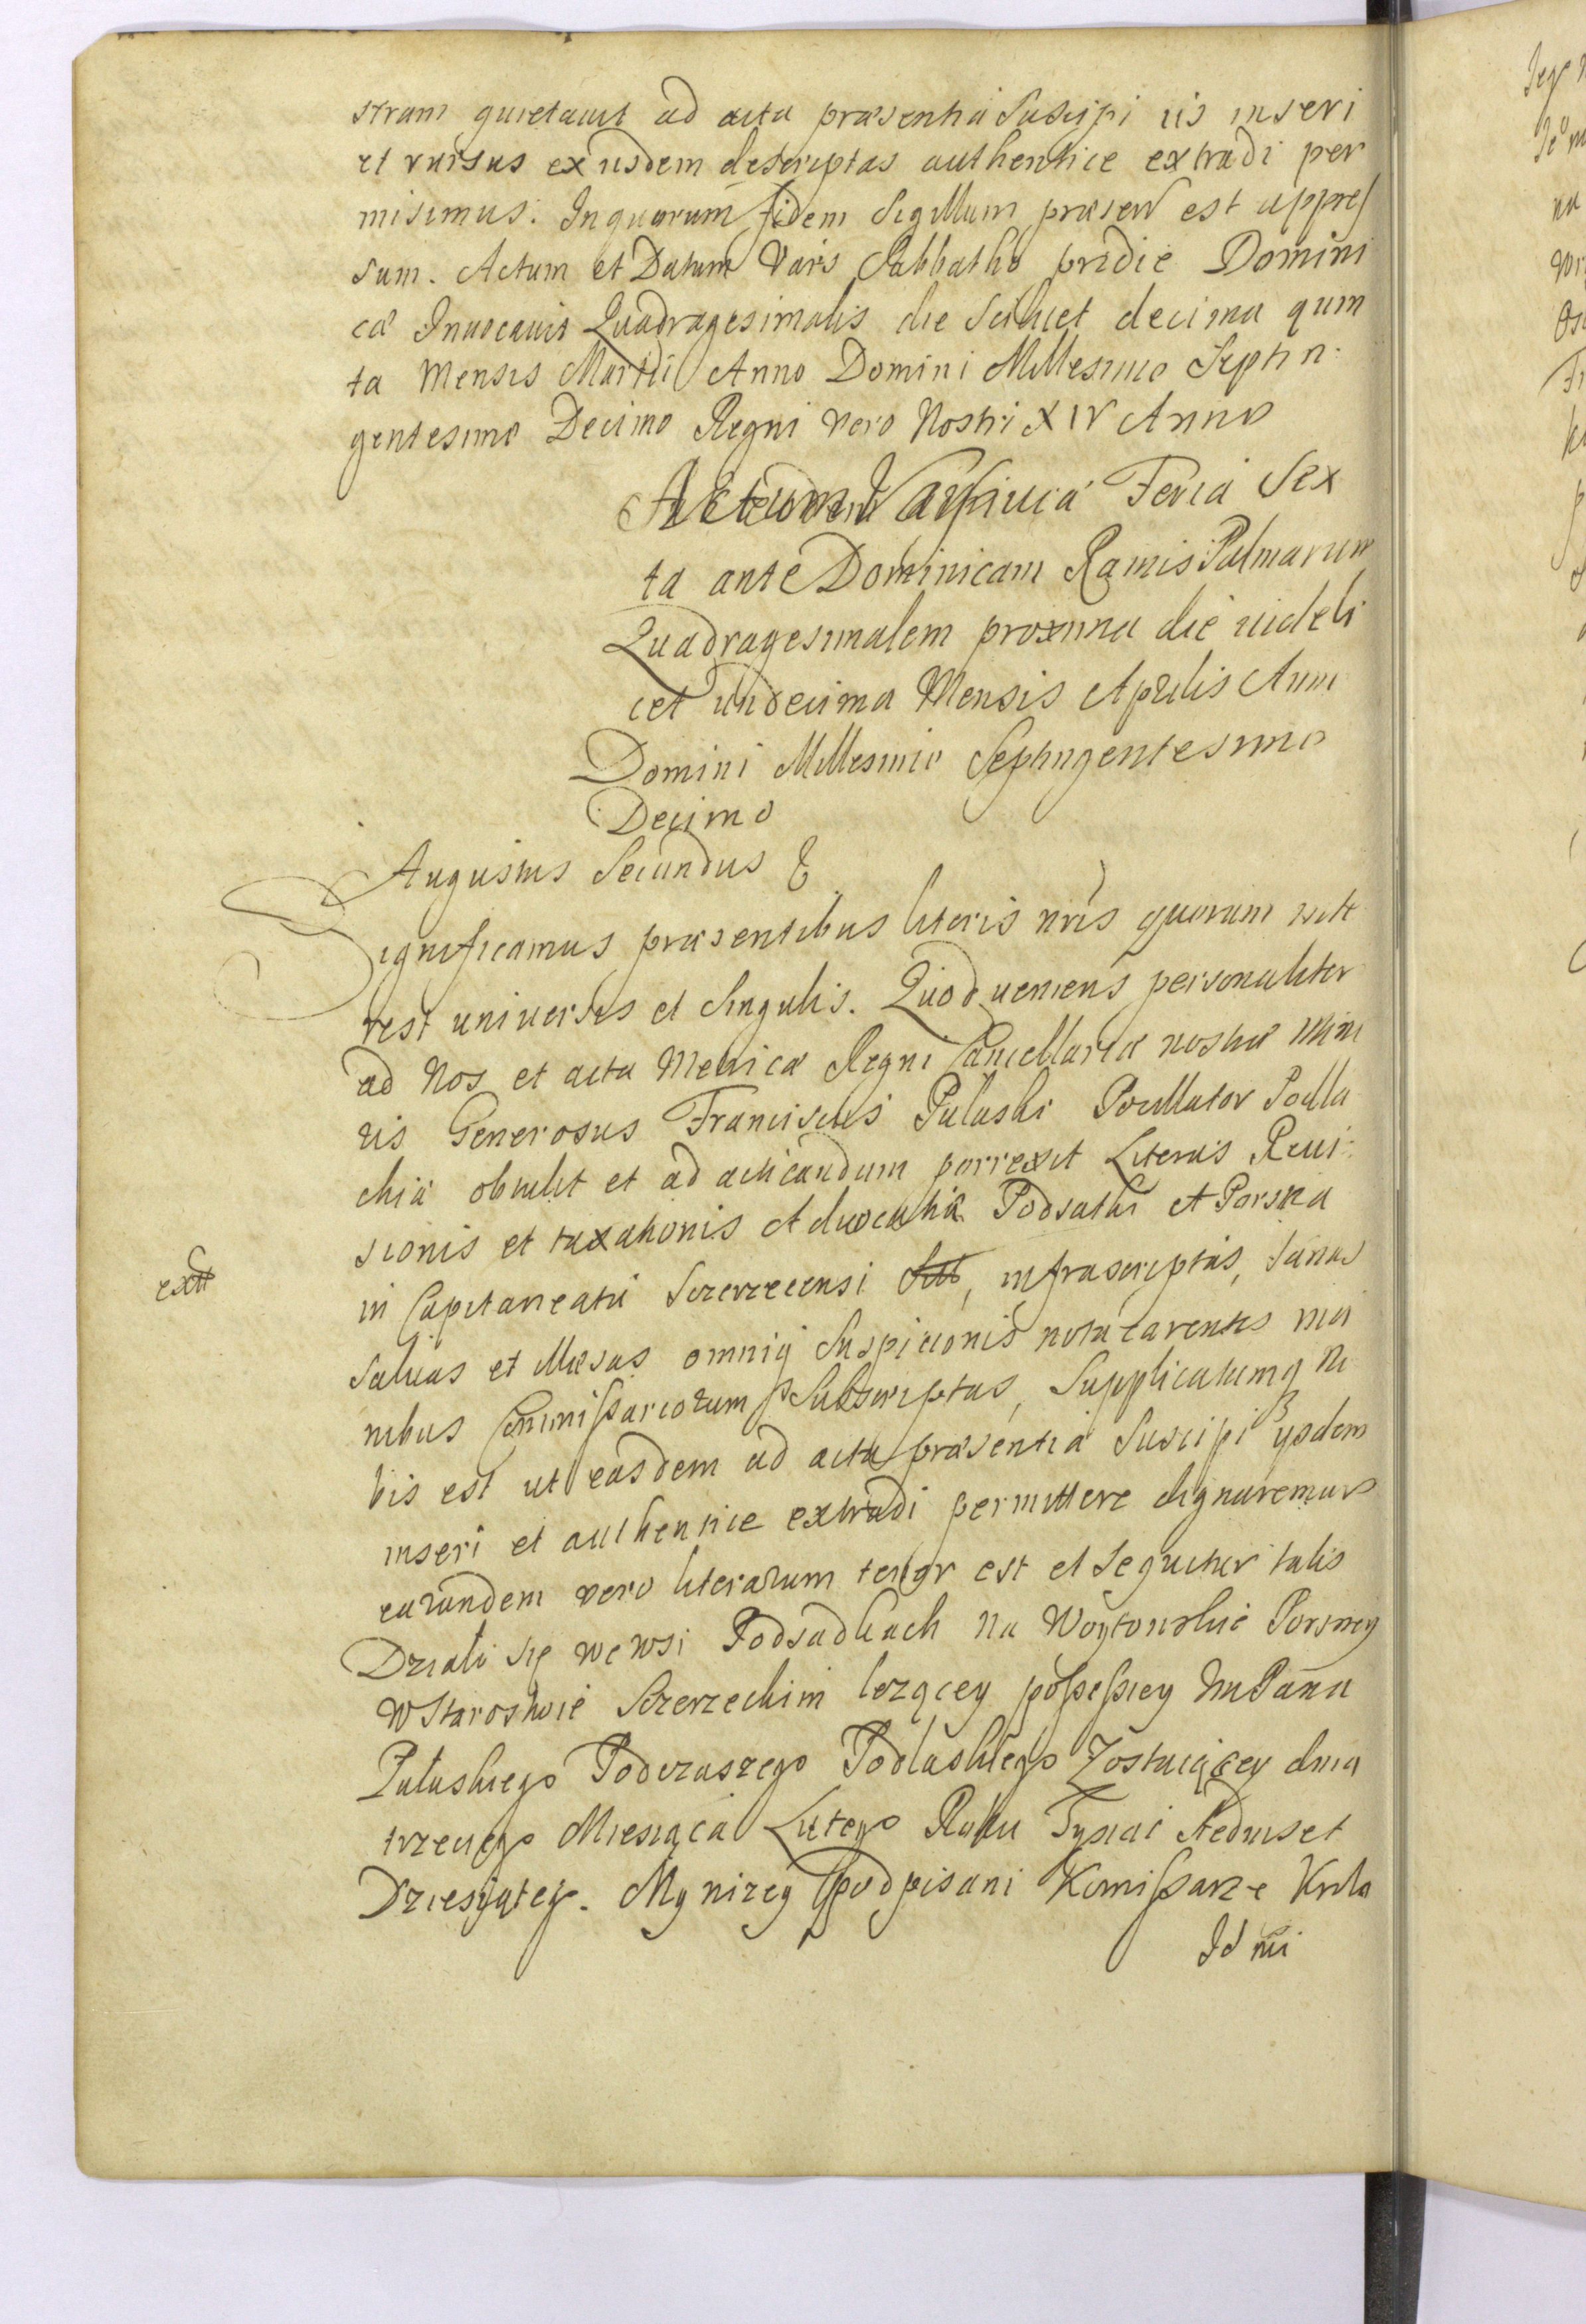 stram quietauit ad acta præsentia Suscipi iis inseri
et rursus ex iisdem descriptas authentice extradi per
misimus. In quorum fidem Sigillum præsen est appres
sum. Actum et Datum Vars Sabbatho pridie Domini
cæ Inuocauit Quadragesimalis die Scilicet decima quin
ta Mensis Martii Anno Domini Millesimo Septin
gentesimo Decimo Regni vero Nostri XIV Anno
Actum Varsauiæ Feria Sex
ta ante Dominicam Ramis Palmarum
Quadragesimalem proxima die uideli
cet undecima Mensis Aprilis Anno
Domini Millesimo Septingentesimo
Decimo
Augustus Secundus &
Significamus præsentibus literis nris quorum inte
rest universis et Singulis. Quod ueniens personaliter
ad Nos et acta Metricæ Regni Cancellariæ nostræ Mino
ris Generosus Franciscus Pułaski Pocillator Podla
chiæ obtulit et ad acticandum porrexit Literas Reui
sionis et taxationis Aduocatiæ Podsatki et Porszna
in Capitaneatu Szerzecensi infrascriptas, Sanas
Saluas et illæsas omniq Suspicionis nota carentes ma
nibus Commissariorum Subscriptas, Supplicatumq No
bis est ut easdem ad acta præsentia Suscipi ysdem
inseri et authentice extradi permittere dignaremur
earundem vero literarum tenor est et Sequitur talis
Działo się we wsi Podsadkach na Woytowstwie Porszney
w Starostwie Szerzeckim lezącey possessiey Im Pana
Pułaskiego Podczaszego Podlaskiego Zostaiącey dnia
trzeciego Miesiąca Lutego Roku Tysiąc Siedmset
Dziesiątego. My nizey podpisani Komissarze Krola
Jd mi
extt